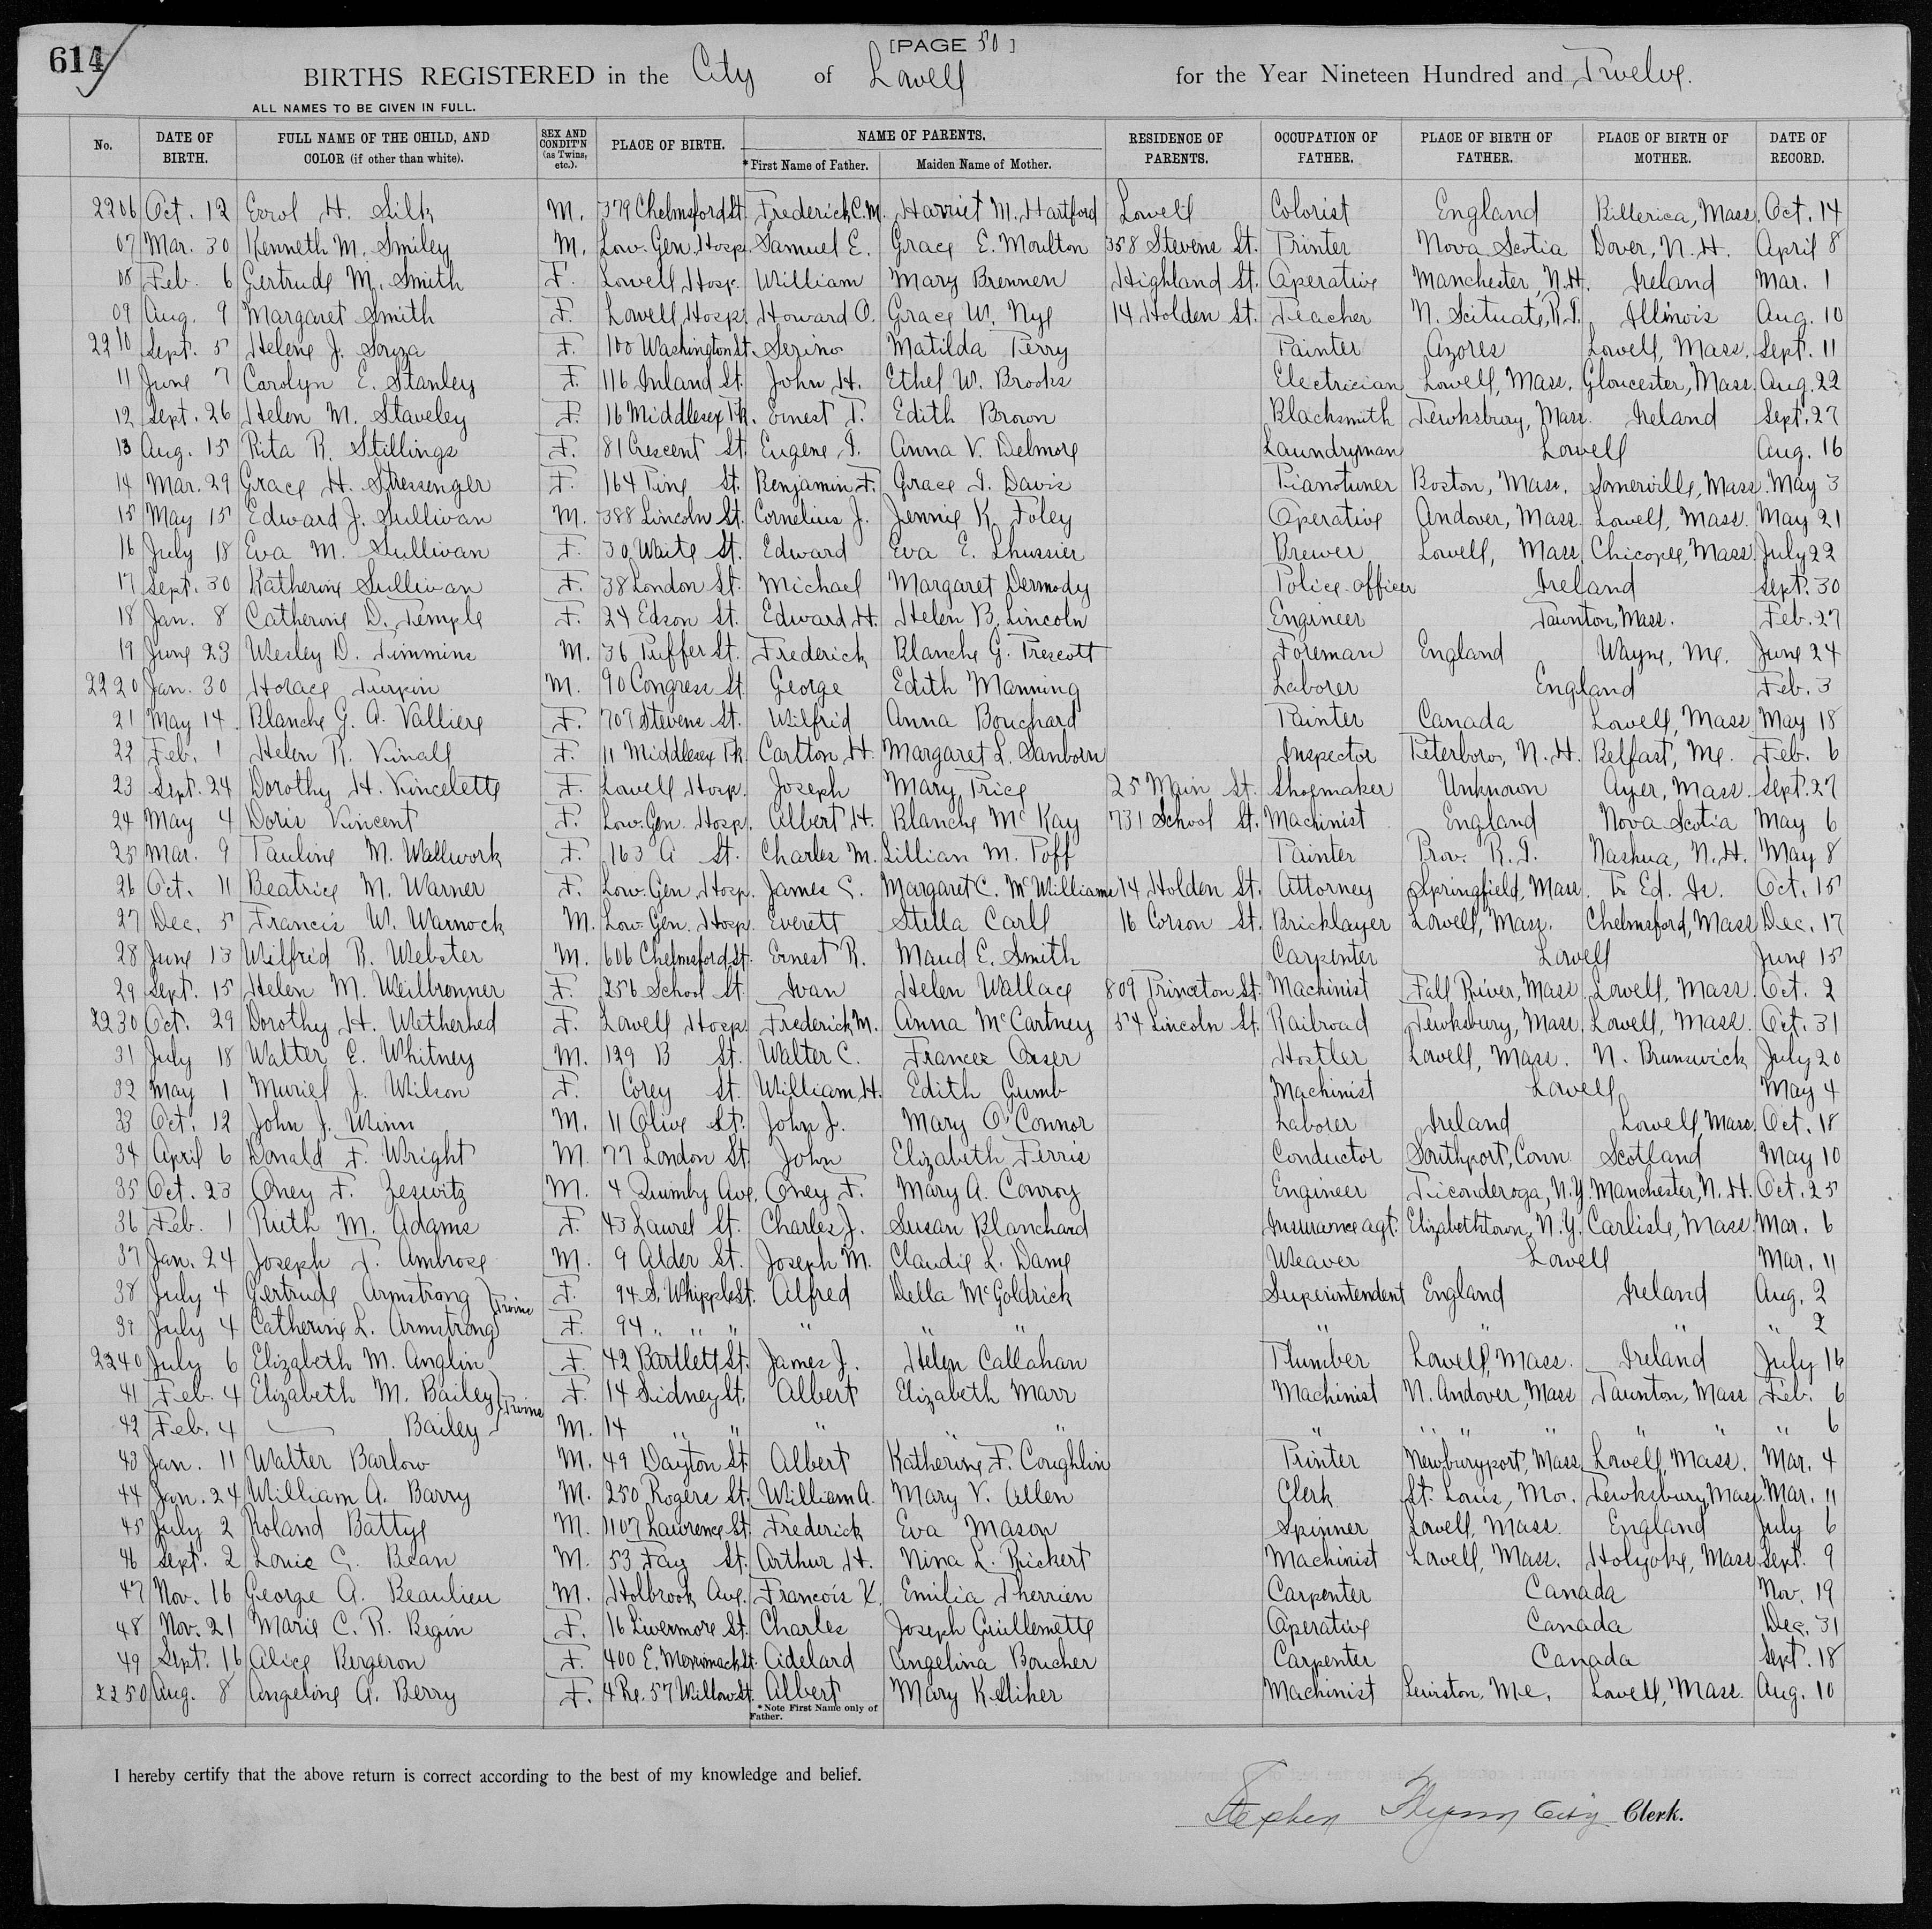 614
[PAGE 50]
BIRTHS REGISTERED in the City of Lowell for the Year Nineteen Hundred and Twelve.
ALL NAMES TO BE GIVEN IN FULL.
No. DATE OF BIRTH. FULL NAME OF THE CHILD, AND COLOR (if other than white). SEX AND CONDIT'N (as Twins, etc.). PLACE OF BIRTH. NAME OF PARENTS. *First Name of Father. Maiden Name of Mother. RESIDENCE OF PARENTS. OCCUPATION OF FATHER. PLACE OF BIRTH OF FATHER. PLACE OF BIRTH OF MOTHER. DATE OF RECORD.
2206 Oct. 12 Errol H. Silk M. 379 Chelmsford St. Frederick C. M. Harriet M. Hartford Lowell Colorist England Billerica, Mass. Oct. 14
07 Mar. 30 Kenneth M. Smiley M. Low. Gen. Hosp. Samuel E. Grace E. Moulton 358 Stevens St. Printer Nova Scotia Dover, N. H. April 8
08 Feb. 6 Gertrude M. Smith F. Lowell Hosp. William Mary Brennen Highland St. Operative Manchester, N.H. Ireland Mar. 1
09 Aug. 9 Margaret Smith F. Lowell Hosp. Howard O. Grace W. Nye 14 Holden St. Teacher N. Scituate, R.I. Illinois Aug. 10
2210 Sept. 5 Helene J. Souza F. 100 Washington St. Serino Matilda Perry Painter Azores Lowell, Mass. Sept. 11
11 June 7 Carolyn E. Stanley F. 116 Inland St. John H. Ethel W. Brooks Electrician Lowell, Mass. Gloucester, Mass. Aug. 22
12 Sept. 26 Helen M. Staveley F. 16 Middlesex Pk. Ernest T. Edith Brown Blacksmith Tewksbury, Mass. Ireland Sept. 27
13 Aug. 15 Rita R. Stillings F. 81 Crescent St. Eugene I. Anna V. Delmore Laundryman Lowell Aug. 16
14 Mar. 29 Grace H. Stressenger F. 164 Pine St. Benjamin F. Grace I. Davis Pianotuner Boston, Mass. Somerville, Mass. May 3
15 May 15 Edward J. Sullivan M. 388 Lincoln St. Cornelius J. Jennie K. Foley Operative Andover, Mass. Lowell, Mass. May 21
16 July 18 Eva M. Sullivan F. 30 Waite St. Edward Eva E. Lhussier Brewer Lowell, Mass. Chicopee, Mass. July 22
17 Sept. 30 Katherine Sullivan F. 38 London St. Michael Margaret Dermody Police officer Ireland Sept. 30
18 Jan. 8 Catherine D. Temple F. 24 Edson St. Edward H. Helen B. Lincoln Engineer Taunton, Mass. Feb. 27
19 June 23 Wesley D. Timmins M. 36 Puffer St. Frederick Blanche G. Prescott Foreman England Wayne, Me. June 24
2220 Jan. 30 Horace Turpin M. 90 Congress St. George Edith Manning Laborer England Feb. 3
21 May 14 Blanche G. A. Valliere F. 707 Stevens St. Wilfrid Anna Bouchard Painter Canada Lowell, Mass. May 18
22 Feb. 1 Helen R. Vinall F. 11 Middlesex Pk. Carlton H. Margaret L. Sanborn Inspector Peterboro, N. H. Belfast, Me. Feb. 6
23 Sept. 24 Dorothy H. Vincelette F. Lowell Hosp. Joseph Mary Price 25 Main St. Shoemaker Unknown Ayer, Mass. Sept. 27
24 May 4 Doris Vincent F. Low. Gen. Hosp. Albert H. Blanche McKay 731 School St. Machinist England Nova Scotia May 6
25 Mar. 9 Pauline M. Wallwork F. 163 A St. Charles M. Lillian M. Poff Painter Prov. R. I. Nashua, N. H. May 8
26 Oct. 11 Beatrice M. Warner F. Low. Gen. Hosp. James C. Margaret C. McWilliams 14 Holden St. Attorney Springfield, Mass. Pr. Ed. Is. Oct. 15
27 Dec. 5 Francis W. Warnock M. Low. Gen. Hosp. Everett Stella Carll 16 Corson St. Bricklayer Lowell, Mass. Chelmsford, Mass. Dec. 17
28 June 13 Wilfrid R. Webster M. 606 Chelmsford St. Ernest R. Maud E. Smith Carpenter Lowell June 15
29 Sept. 15 Helen M. Weilbrenner F. 256 School St. Ivan Helen Wallace 809 Princeton St. Machinist Fall River, Mass. Lowell, Mass. Oct. 2
2230 Oct. 29 Dorothy H. Wetherhed F. Lowell Hosp. Frederick M. Anna McCartney 54 Lincoln St. Railroad Tewksbury, Mass. Lowell, Mass. Oct. 31
31 July 18 Walter E. Whitney M. 129 B St. Walter C. Frances Orser Hostler Lowell, Mass. N. Brunswick July 20
32 May 1 Muriel J. Wilson F. Corey St. William H. Edith Gumb Machinist Lowell May 4
33 Oct. 12 John J. Winn M. 11 Olive St. John J. Mary O'Connor Laborer Ireland Lowell Mass. Oct. 18
34 April 6 Donald F. Wright M. 77 London St. John Elizabeth Ferris Conductor Southport, Conn. Scotland May 10
35 Oct. 23 Oney F. Zeswitz M. 4 Quimby Ave. Oney F. Mary A. Conroy Engineer Ticonderoga, N.Y. Manchester, N. H. Oct. 25
36 Feb. 1 Ruth M. Adams F. 43 Laurel St. Charles J. Susan Blanchard Insurance agt. Elizabethtown, N.Y. Carlisle, Mass. Mar. 6
37 Jan. 24 Joseph T. Ambrose M. 9 Alder St. Joseph M. Claudie L. Dame Weaver Lowell Mar. 11
38 July 4 Gertrude Armstrong } Twins F. 94 S. Whipple St. Alfred Della McGoldrick Superintendent England Ireland Aug. 2
39 July 4 Catherine L. Armstrong F. 94 " " " " " " " " " " 2
2240 July 6 Elizabeth M. Anglin F. 42 Bartlett St. James J. Helen Callahan Plumber Lowell, Mass. Ireland July 16
41 Feb. 4 Elizabeth M. Bailey } Twins F. 14 Sidney St. Albert Elizabeth Marr Machinist N. Andover, Mass. Taunton, Mass. Feb. 6
42 Feb. 4 — Bailey M. 14 " " " " " " " " " " " " 6
43 Jan. 11 Walter Barlow M. 49 Dayton St. Albert Katherine F. Coughlin Printer Newburyport, Mass. Lowell, Mass. Mar. 4
44 Jan. 24 William A. Barry M. 250 Rogers St. William A. Mary V. Allen Clerk St. Louis, Mo. Tewksbury Mass. Mar. 11
45 July 2 Roland Battye M. 1107 Lawrence St. Frederick Eva Mason Spinner Lowell, Mass. England July 6
46 Sept. 2 Louis C. Bean M. 53 Fay St. Arthur H. Nina L. Rickert Machinist Lowell, Mass. Holyoke, Mass. Sept. 9
47 Nov. 16 George A. Beaulieu M. Holbrook Ave. Francois X. Emilia Therrien Carpenter Canada Nov. 19
48 Nov. 21 Marie C. R. Begin F. 16 Livermore St. Charles Joseph Guillemette Operative Canada Dec. 31
49 Sept. 16 Alice Bergeron F. 400 E. Merrimack St. Adelard Angelina Boucher Carpenter Canada Sept. 18
2250 Aug. 8 Angeline A. Berry F. 4 Re. 57 Willow St. Albert Mary Kelliher Machinist Lewiston, Me. Lowell, Mass. Aug. 10
*Note First Name only of Father.
I hereby certify that the above return is correct according to the best of my knowledge and belief.
Stephen Flynn City Clerk.